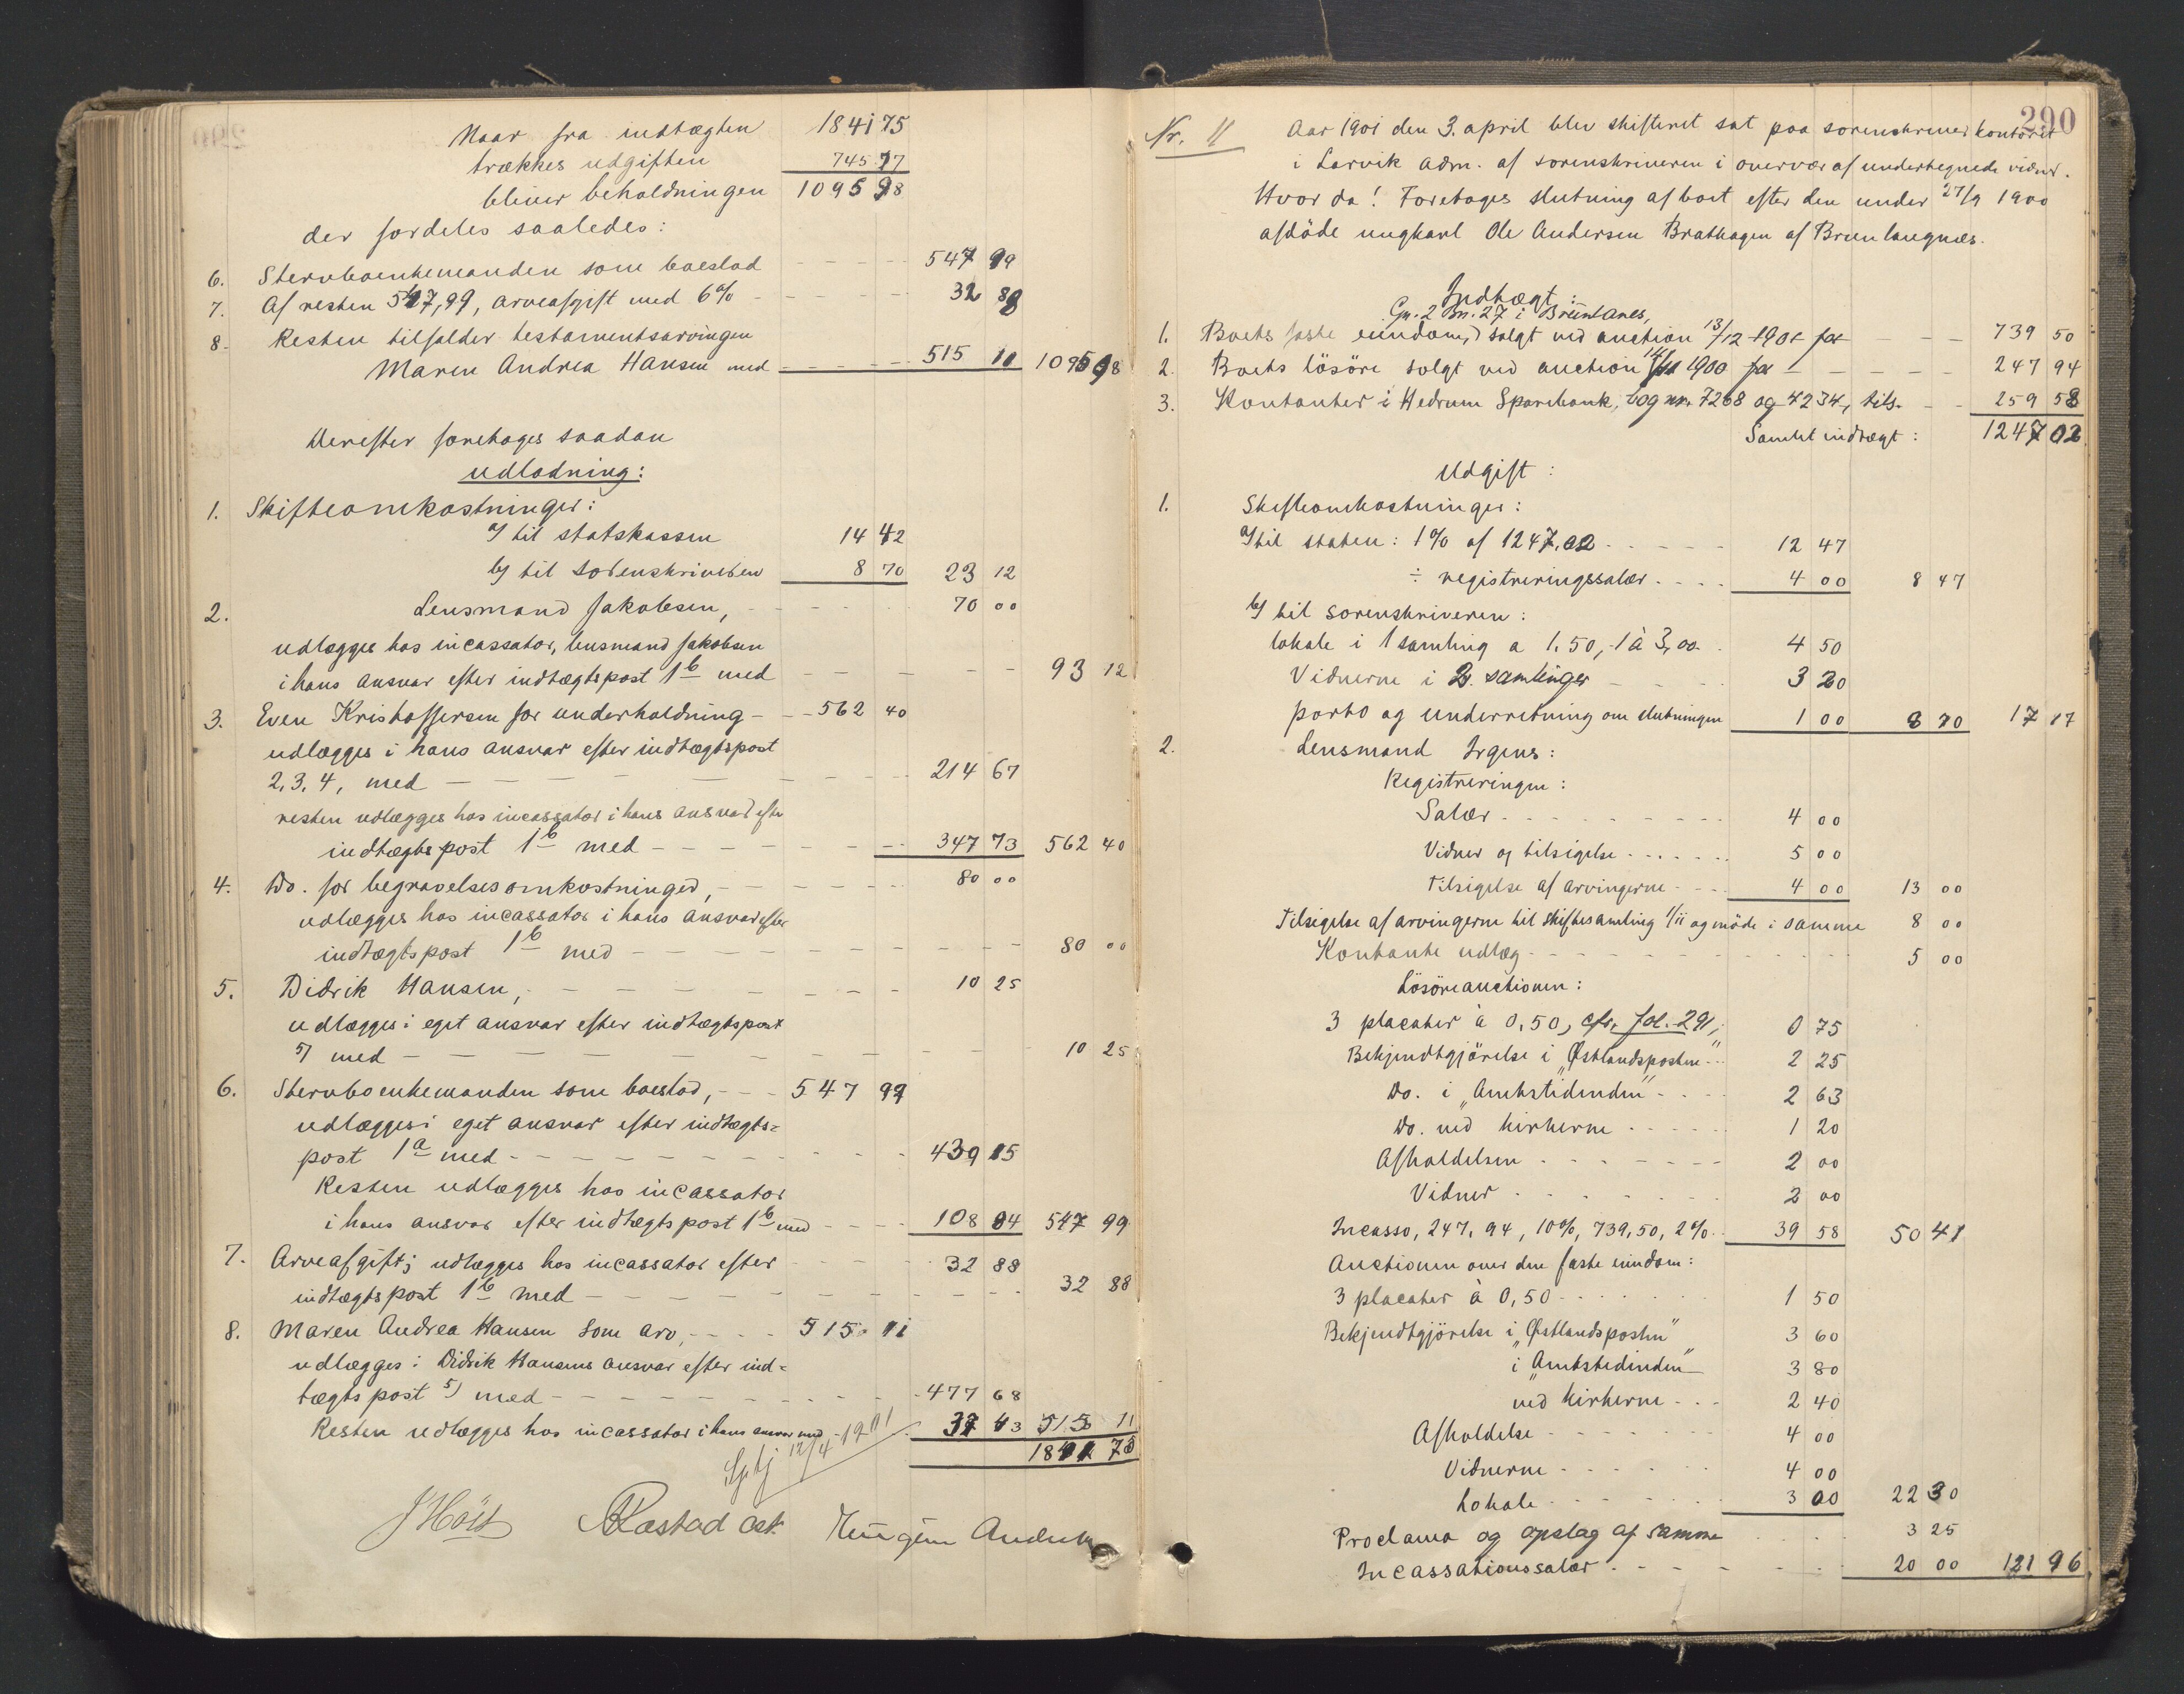 Naar fra indtægten 1841 75
trækkes udgiften 745 77
bliver beholdningen 1095 98
der fordeles saaledes:
6. Stervboenkemanden som boeslod - - - - 547 99
7. Af resten 547,99, arveafgift med 6% - - - - 32 88
8. Resten tilfalder testamentsarvingen
Maren Andrea Hansen med - - - - 515 11 1095 98
Derefter foretages saadan
udlodning:
1. Skifteomkostninger:
a/ til statskassen 14 42
b/ til sorenskriveren 8 70 23 12
2. Lensmand Jakobsen, - - - - 70 00
udlægges hos incassator, lensmand Jakobsen
i hans ansvar efter indtægtspost 1b med - - - - 93 12
3. Even Kristoffersen for underholdning - - - 562 40
udlægges i hans ansvar efter indtægtspost
2, 3, 4, med - - - - 214 67
resten udlægges hos incassator i hans ansvar efter
indtægtspost 1b med - - - - 347 73 562 40
4. Do. for begravelsesomkostninger, - - - - 80 00
udlægges hos incassator i hans ansvar efter
indtægtspost 1b med - - - - 80 00
5. Didrik Hansen, - - - - 10 25
udlægges i eget ansvar efter indtægtspost
5/ med - - - - 10 25
6. Stervboenkemanden som boeslod, - - - 547 99
udlægges i eget ansvar efter indtægts=
post 1a med - - - - 439 15
Resten udlægges hos incassator
i hans ansvar efter indtægtspost 1b med - - - - 108 84 547 99
7. Arveafgift; udlægges hos incassator efter - - - - 32 88
indtægtspost 1b med - - - - 32 88
8. Maren Andrea Hansen som arv, - - - - 515 11
udlægges i Didrik Hansens ansvar efter ind=
tægtspost 5) med - - - - 477 68
Resten udlægges hos incassator i hans ansvar med - 37 43 515 11
1841 75
12/4 - 1901
J Höst Rastad ast.
290
Nr. 11 Aar 1901 den 3. april blev skifteret sat paa sorenskriverkontoret
i Larvik adm. af sorenskriveren i overvær af undertegnede vidner.
Hvor da! Foretages slutning af boet efter den under 27/9 1900
afdöde ungkarl Ole Andersen Brathagen af Brunlangnæs.
Indtægt:
Gn. 2 Bn. 27 i Brunlanes,
1. Boets faste eiendom, solgt ved auction 13/12 1901 for - - - 739 50
2. Boets lösöre solgt ved auction 14/11 1900 for - - - - 247 94
3. Kontanter i Hedrum Sparebank, bog nr. 7268 og 4234, tils. - - 259 58
Samlet indtægt: 1247 02
Udgift:
1. Skifteomkostninger:
a/ til staten: 1% af 1247,02 - - - - 12 47
÷ registreringssalær - - - - 4 00 8 47
b/ til sorenskriveren:
lokale i 1 samling a 1.50, 1 à 3,00 - 4 50
Vidnerne i 2 samlinger - - - - 3 20
porto og underretning om slutningen 1 00 8 70 17 17
2. Lensmand Irgens:
Registreringen:
Salær - - - - 4 00
Vidner og tilsigelse - - - - 5 00
Tilsigelse af arvingerne - - - 4 00 13 00
Tilsigelse af arvingerne til skiftesamling 1/11 og möde i samme 8 00
Kontante udlæg - - - - 5 00
Lösöreauctionen:
3 placater à 0,50, cfr. fol. 291, 0 75
Bekjendtgjörelse i "Østlandsposten" - - 2 25
Do. i "Amtstidenden" - - - 2 63
Do. ved kirkerne - - - - 1 20
Afholdelsen - - - - 2 00
Vidner - - - - 2 00
Incasso, 247,94, 10%, 739,50, 2% - - 39 58 50 41
Auctionen over den faste eiendom:
3 placater à 0,50 - - - - 1 50
Bekjendtgjörelse i "Østlandsposten" 3 60
i "Amtstidenden" 3 80
ved kirkerne - - - 2 40
Afholdelse - - - - 4 00
Vidnerne - - - - 4 00
Lokale - - - - 3 00 22 30
Proclama og opslag af samme - - 3 25
Incassationssalær - - - - 20 00 121 96